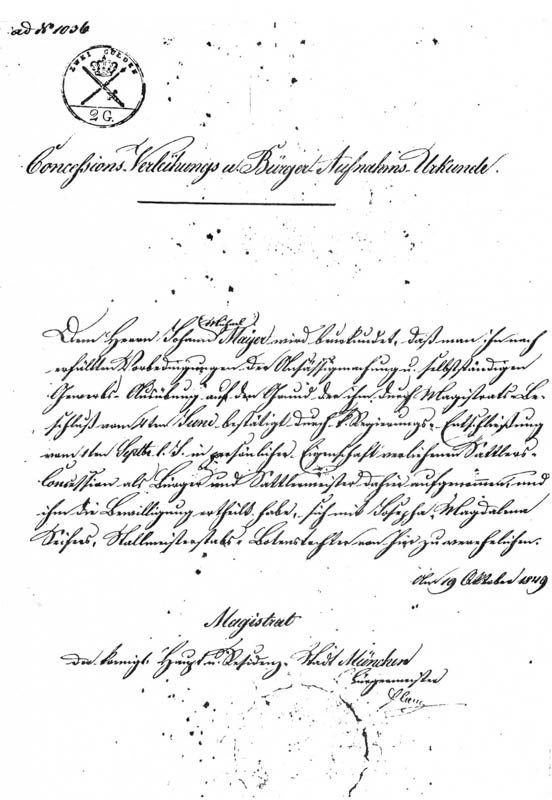 ad No 1036
ZWEI GULDEN
2 G.
Concessions-Verleihungs u. Bürger-Aufnahms-Urkunde.
Michael
Dem Herrn Johann Mayer wird beurkundet, daß man ihn nach
erfüllten Vorbedingungen der Ansässigmachung u. selbstständigen
Gewerbs-Ausübung auf den Grund der ihm durch Magistrats-Be-
schluß vom 4ten Juni bestätigt durch k. Regierungs-Entschließung
vom 1ten Septbr. l. J. in persönlicher Eigenschaft verliehenen Sattlers-
Concession als Bürger und Sattlermeister dahier aufgenommen, und
ihm die Bewilligung ertheilt habe, sich mit Josepha Magdalena
Stallmeisterstabs-Botenstochter von hier zu verehelichen.
Am 19 Oktober 1849
Magistrat
der königl. Haupt u. Residenz-Stadt München
Bürgermeister